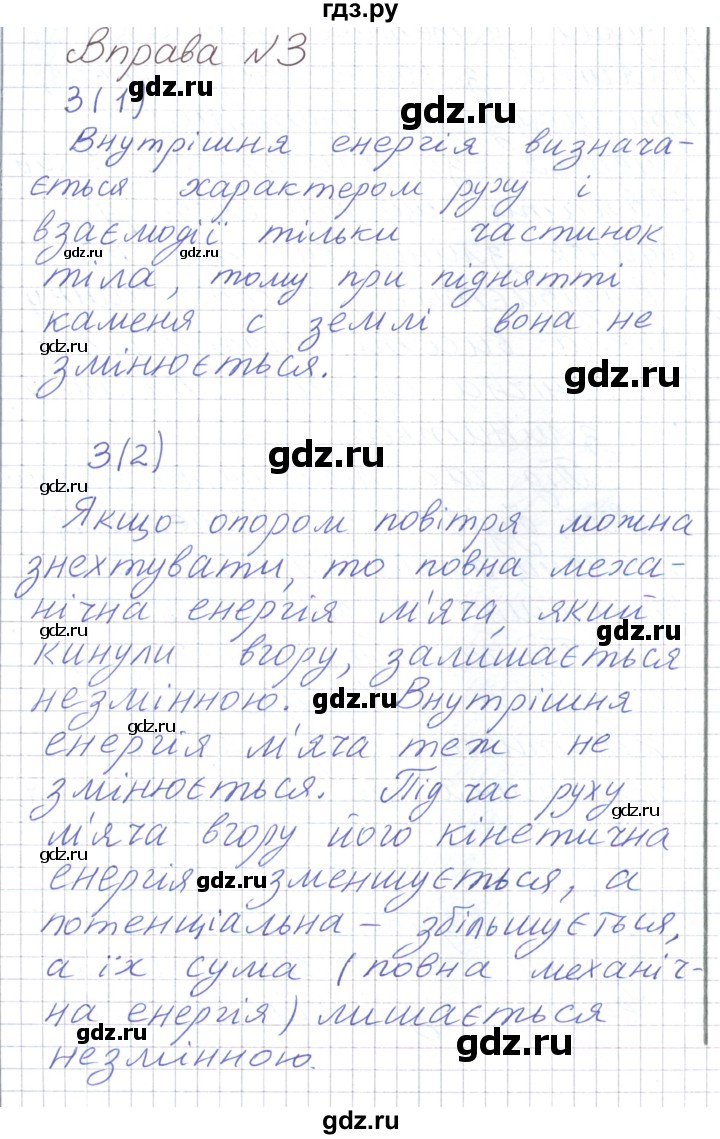 гдз.ру
Вправа №3
gdz.ru
3(1)
gdz.ru
Внутрішня енергія визнача-
ється характером руху і
взаємодії тільки частинок
gdz.ru gdz.ru
тіла, тому при піднятті
каменя с землі вона не
gdz.ru
змінюється.
gdz.ru
3(2)
gdz.ru
gdz.ru
Якщо опором повітря можна
знехтувати, то повна меха-
нічна енергія м'яча, який
gdz.ru gdz.ru
кинули вгору, залишається
незмінною. Внутрішня
gdz.ru
gdz.ru
енергія м'яча теж не
змінюється. Під час руху
gdz.ru
м'яча вгору його кінетична
gdz.ru
енергія зменшується, а
gdz.ru
потенціальна – збільшується,
а їх сума (повна механіч-
gdz.ru
на енергія) лишається
gdz.ru
gdz.ru
незмінною.
gdz.ru